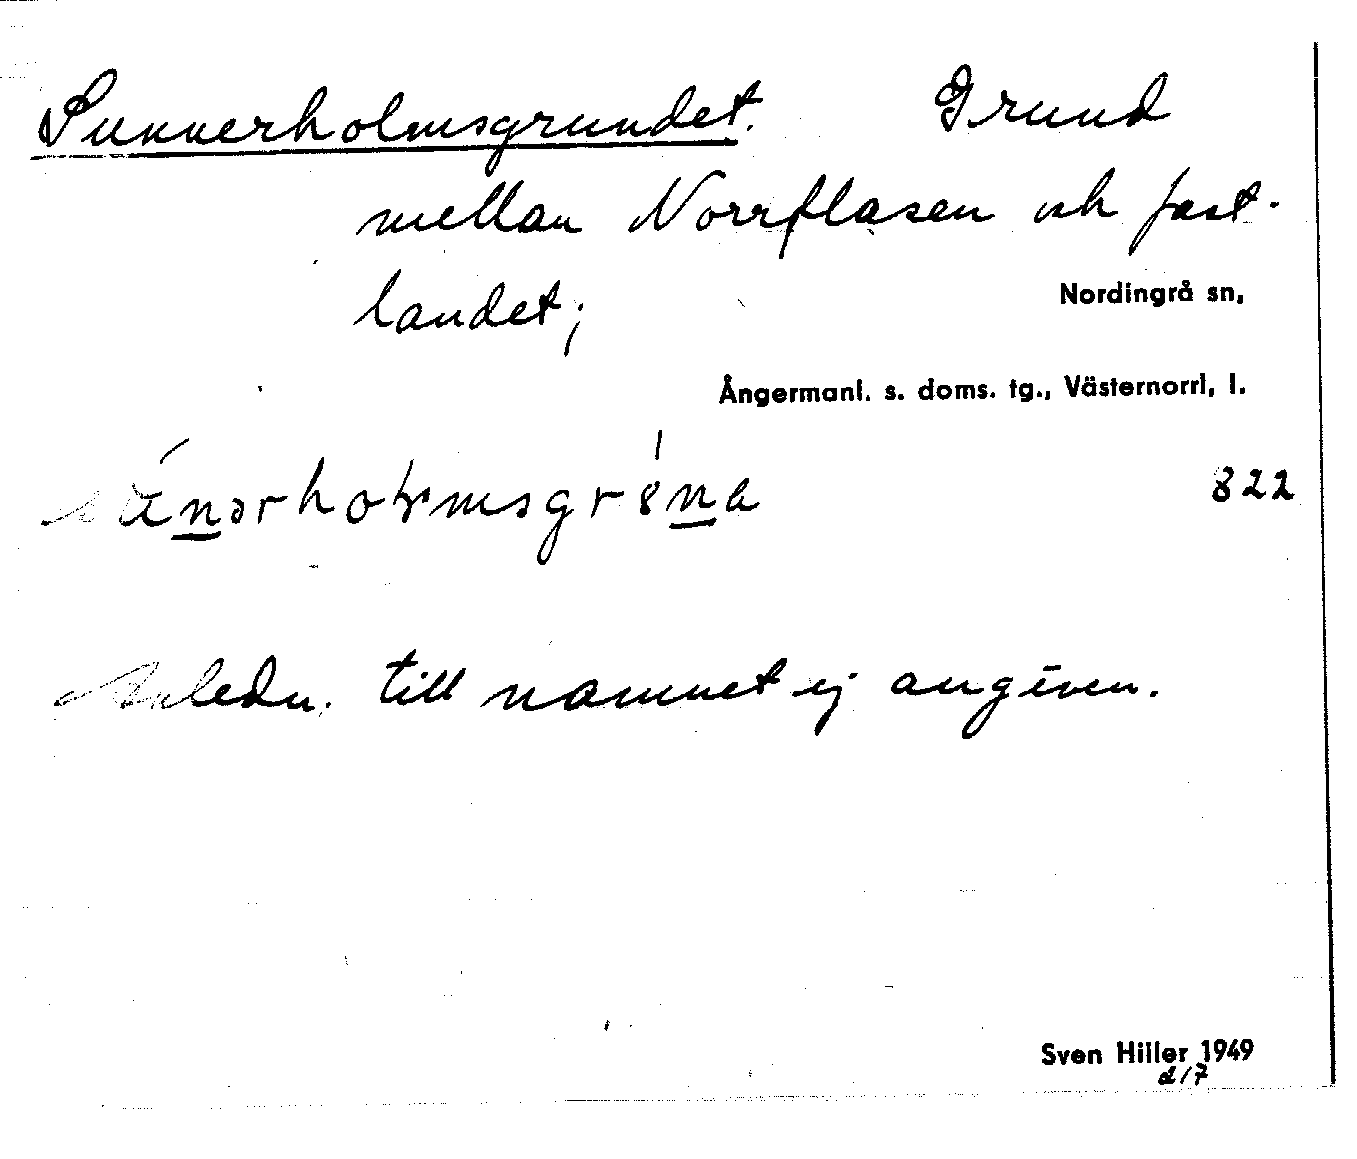 Sunnerholmsgrundet. Grund
mellan Norrflasen och fast-
landet;
Nordingrå sn,
Ångermanl. s. doms. tg., Västernorrl, l.
822
Anledn. till namnet ej angiven.
Sven Hiller 1949
2/7